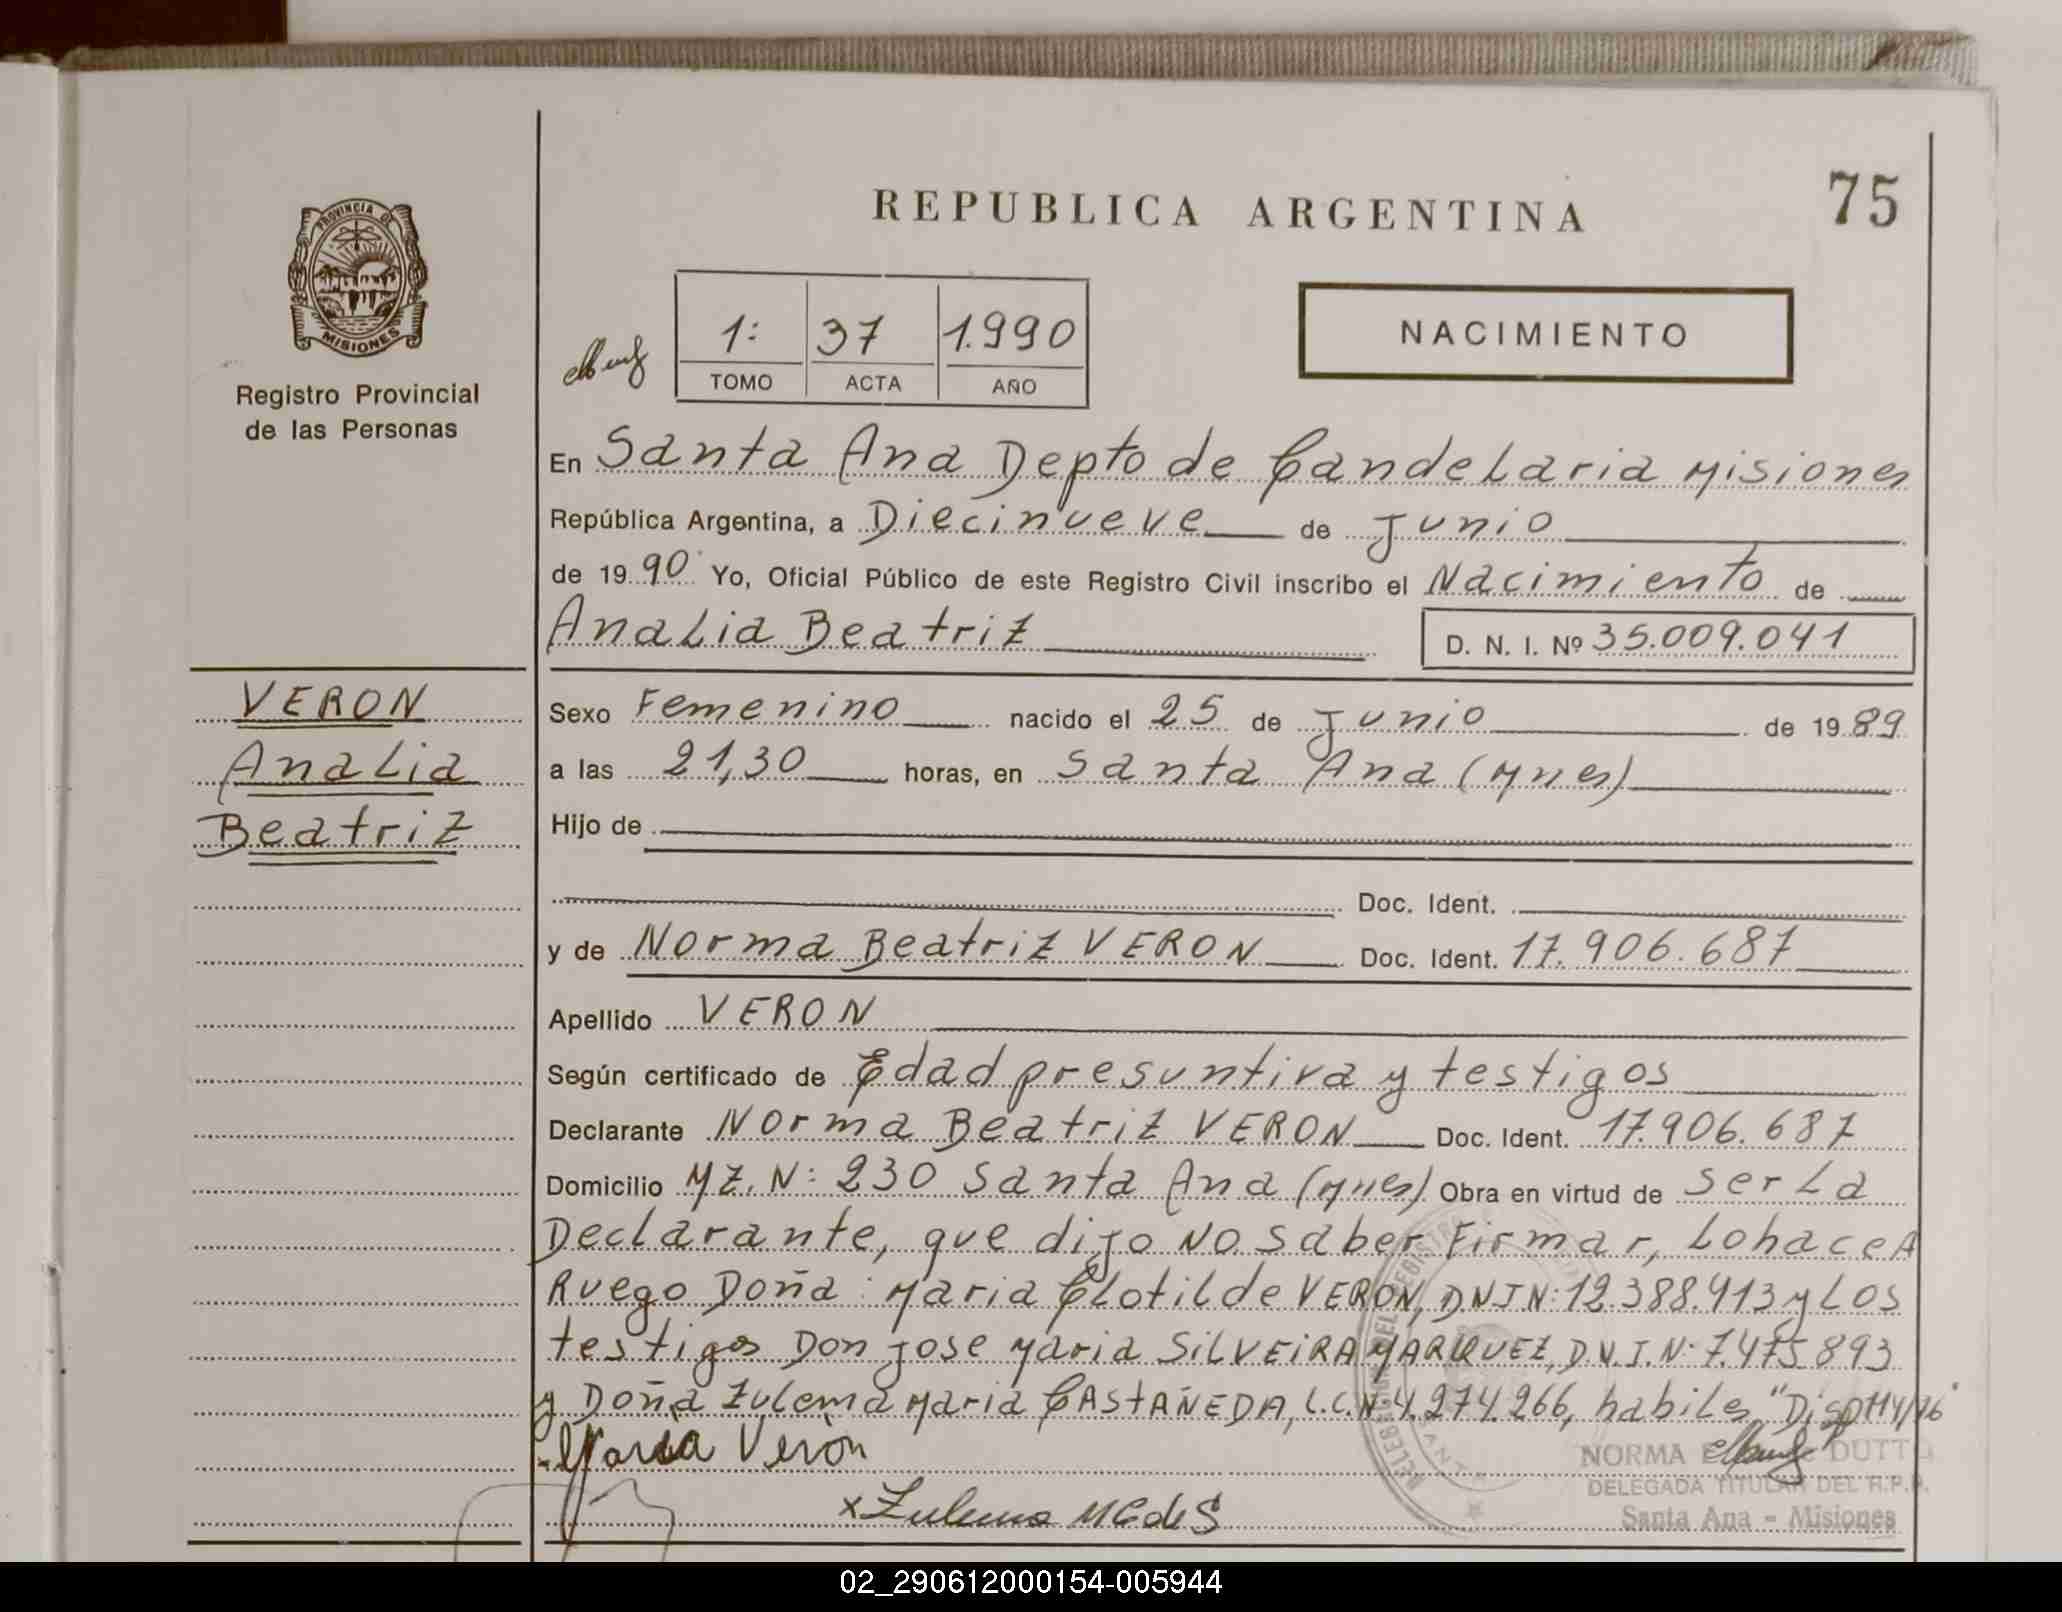 REPUBLICA ARGENTINA
75
PROVINCIA D
MISIONES
Registro Provincial
de las Personas
1: 37 1.990
TOMO ACTA AÑO
NACIMIENTO
En Santa Ana Depto de Candelaria Misiones
República Argentina, a Diecinueve de Junio
de 1990 Yo, Oficial Público de este Registro Civil inscribo el Nacimiento de
Analia Beatriz D. N. I. Nº 35.009.041
VERON
Analia
Beatriz
Sexo Femenino nacido el 25 de Junio de 1989
a las 21,30 horas, en Santa Ana (Mnes)
Hijo de
Doc. Ident.
y de Norma Beatriz VERON Doc. Ident. 17.906.687
Apellido VERON
Según certificado de Edad presuntiva y testigos
Declarante Norma Beatriz VERON Doc. Ident. 17.906.687
Domicilio MZ. N: 230 Santa Ana (Mnes) Obra en virtud de ser La
Declarante, que dijo NO saber Firmar, Lo hace A
Ruego Doña: Maria Clotilde VERON, DNI N: 12.388.913 y Los
testigos Don Jose Maria SiLVEiRA MARQUEZ, D.N.I. N: 7.475893
y Doña Zulema Maria CASTAÑEDA, L.C. N: 4.274.266, habiles "Disp 114/76"
Maria Verón
x Zulema M C de S
NORMA DUTTO
DELEGADA TITULAR DEL R.P.P.
Santa Ana - Misiones
02_290612000154-005944